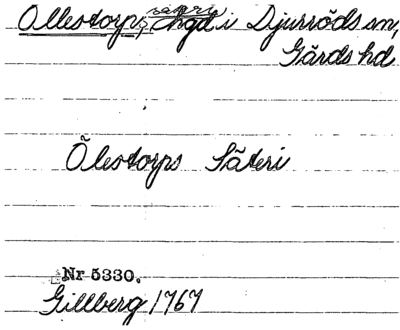 Ollestorps, säteri i Djurröds sn,
Gärds hd
Ölestorps Säteri
Nr 5330.
Gillberg 1767